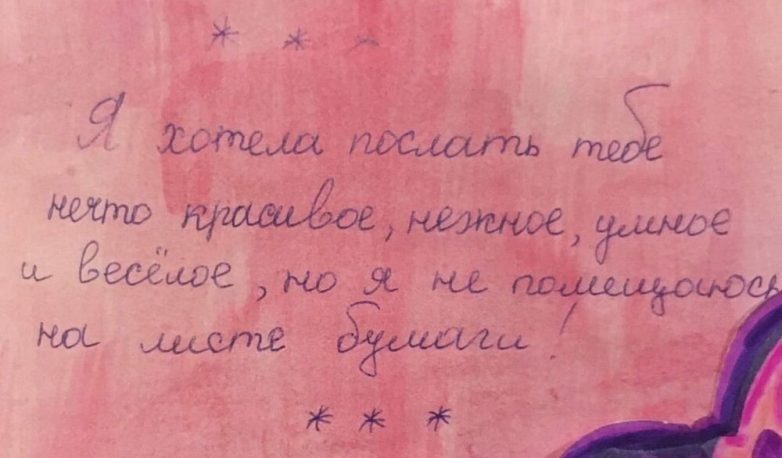 * * *
Я хотела послать тебе
нечто красивое, нежное, умное
и весёлое, но я не помещаюсь
на листе бумаги!
* * *